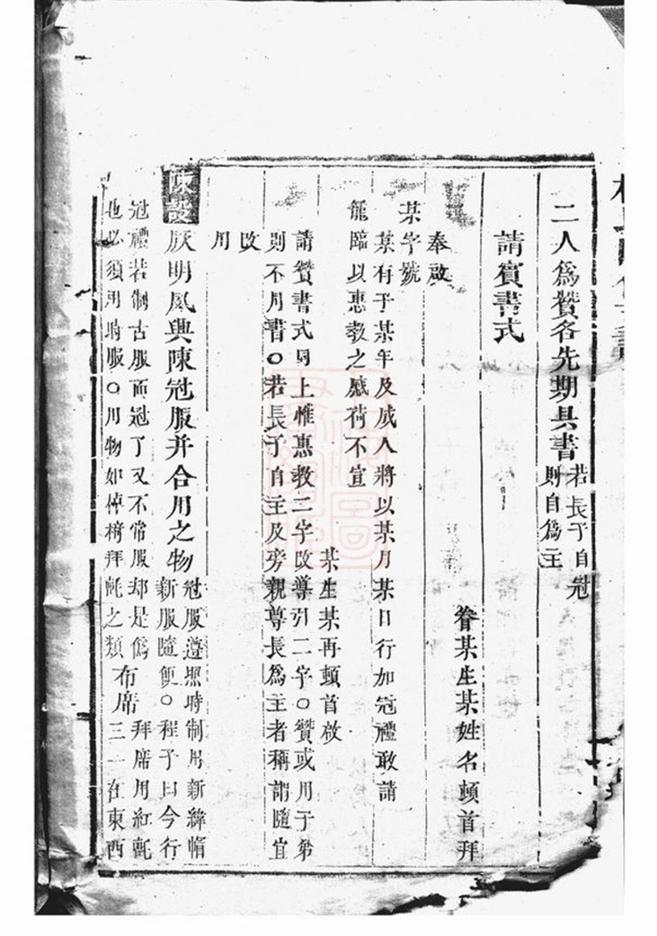 二人爲贊各先期具書若長子自冠
則自爲主
請賓書式
眷某生某姓名頓首拜
奉啟
某字號
某有子某年及成人將以某月某日行加冠禮敢請
寵臨以惠教之感荷不宣
某生某再頓首啟
請贊書式同上惟惠教二字改導引二字○贊或用子弟
則不用書○若長子自主及旁親尊長爲主者稱謂隨宜
改
用
陳設
厥明夙興陳冠服并合用之物
冠服遵照時制用新緯帽
新服隨便○程子曰今行
冠禮若制古服而冠了又不常服却是僞
也必須用時服○用物如棹椅拜氈之類
布席
拜席用紅氈
三一在東西